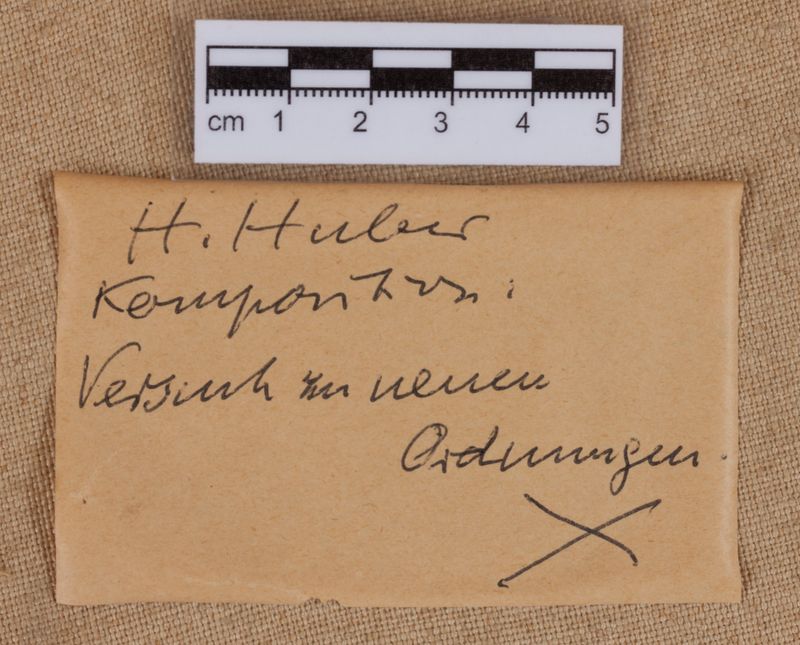 cm 1 2 3 4 5
H. Huber
Komposition:
Versuch zu neuen
Ordnungen.